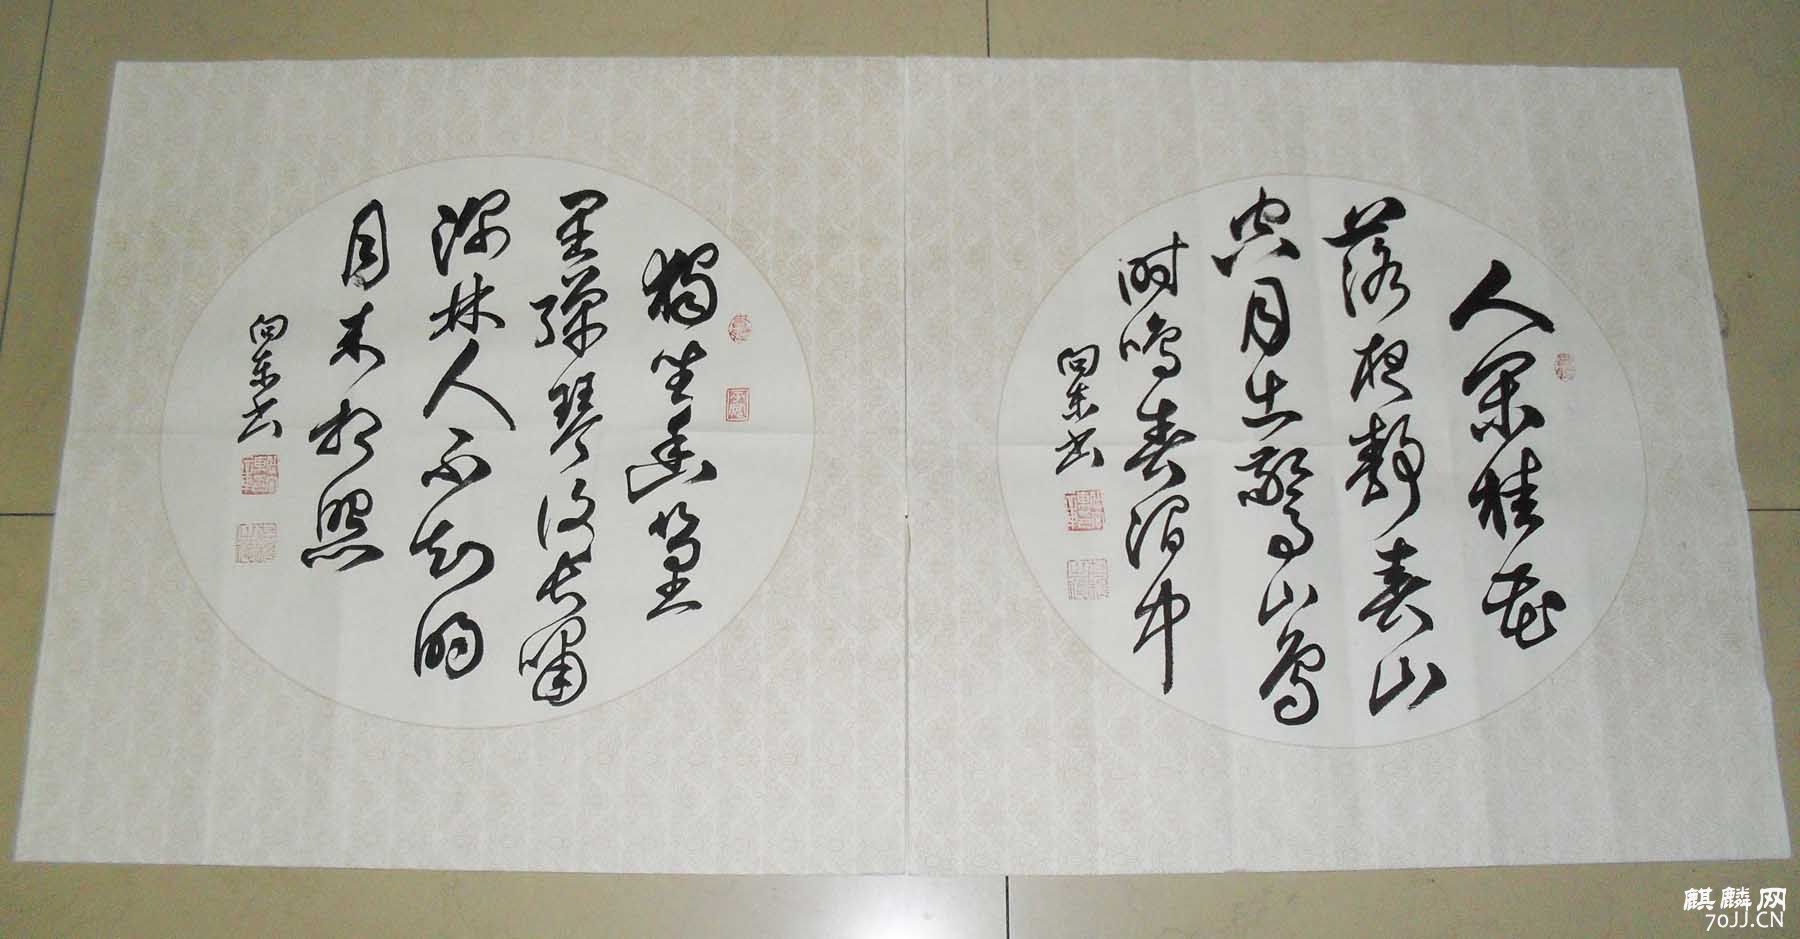 人闲桂花
落夜静春山
空月出惊山鸟
时鸣春涧中
向东书
独坐幽篁
里弹琴复长啸
深林人不知明
月来相照
向东书
麒麟网
70JJ.CN